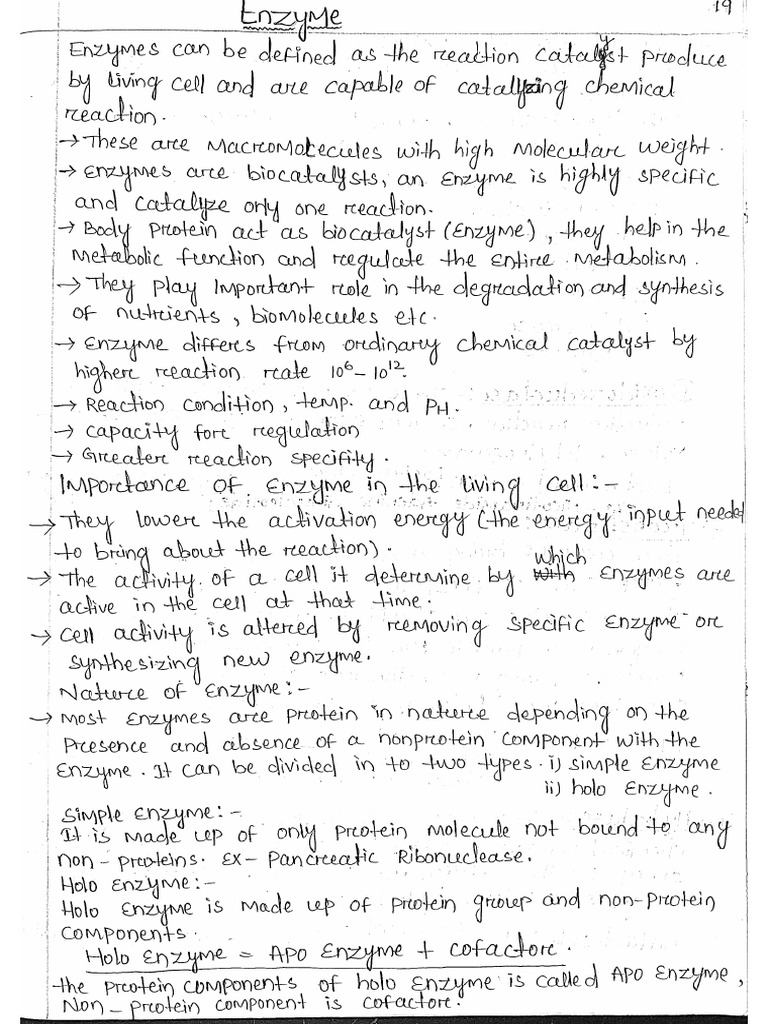 Enzyme
19
Enzymes can be defined as the reaction catalyst produce
by living cell and are capable of catalyzing chemical
reaction.
→ These are Macromolecules with high Molecular weight.
→ Enzymes are biocatalysts, an Enzyme is highly specific
and catalyze only one reaction.
→ Body Protein act as biocatalyst (Enzyme), they help in the
Metabolic function and regulate the Entire Metabolism.
→ They play Important role in the degradation and synthesis
of nutrients, biomolecules etc.
→ Enzyme differs from ordinary chemical catalyst by
higher reaction rate 10⁶ – 10¹².
→ Reaction condition, temp. and PH.
→ capacity for regulation
→ Greater reaction specifity.
Importance of Enzyme in the living cell :-
→ They lower the activation energy (the energy input needed
to bring about the reaction).
→ The activity of a cell it determine by which Enzymes are
active in the cell at that time.
→ Cell activity is altered by removing specific Enzyme or
synthesizing new enzyme.
Nature of Enzyme :-
→ Most Enzymes are protein in nature depending on the
Presence and absence of a nonprotein component with the
Enzyme. It can be divided in to two types. i) simple Enzyme
ii) holo Enzyme.
Simple Enzyme :-
It is made up of only protein molecule not bound to any
non-proteins. Ex- Pancreatic Ribonuclease.
Holo Enzyme :-
Holo Enzyme is made up of protein group and non-protein
components.
Holo Enzyme = Apo Enzyme + cofactor.
the protein components of holo Enzyme is called Apo Enzyme,
Non-protein component is cofactor.